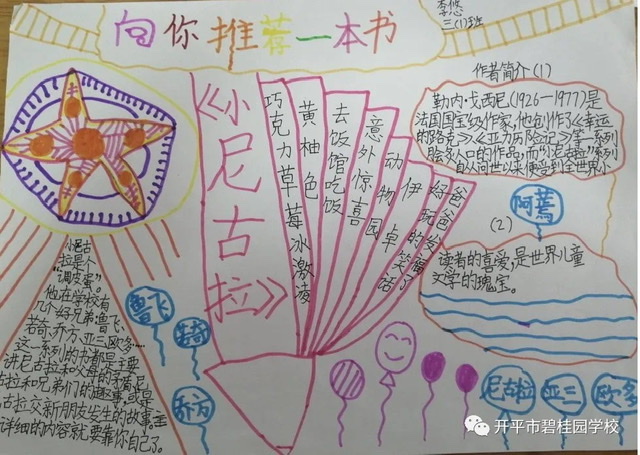 向你推荐一本书
李悠
三(1)班
《小尼古拉》
巧克力草莓冰激凌
黄柚色
去饭馆吃饭
意外惊喜
动物园
伊卓
好玩的笑话
爸爸发福了
作者简介(1)
勒内·戈西尼(1926—1977)是
法国国宝级作家,他创作了《幸运
的路克》《亚力历险记》等一系列
脍炙人口的作品,而"尼克拉"系列
自从问世以来便受到全世界小
(2)
阿蔫
读者的喜爱,是世界儿童
文学的瑰宝。
小尼古
拉是个
"调皮蛋"。
他在学校有
几个好兄弟:鲁飞、
若奇、乔方、亚三、欧多……
这一系列的书都是主要
讲尼古拉和父母的矛盾,尼
古拉和兄弟们的趣事,或是
古拉交新朋友发生的故事。
详细的内容就要靠你自己了。
鲁飞
若奇
乔方
尼古拉
亚三
欧多
开平市碧桂园学校